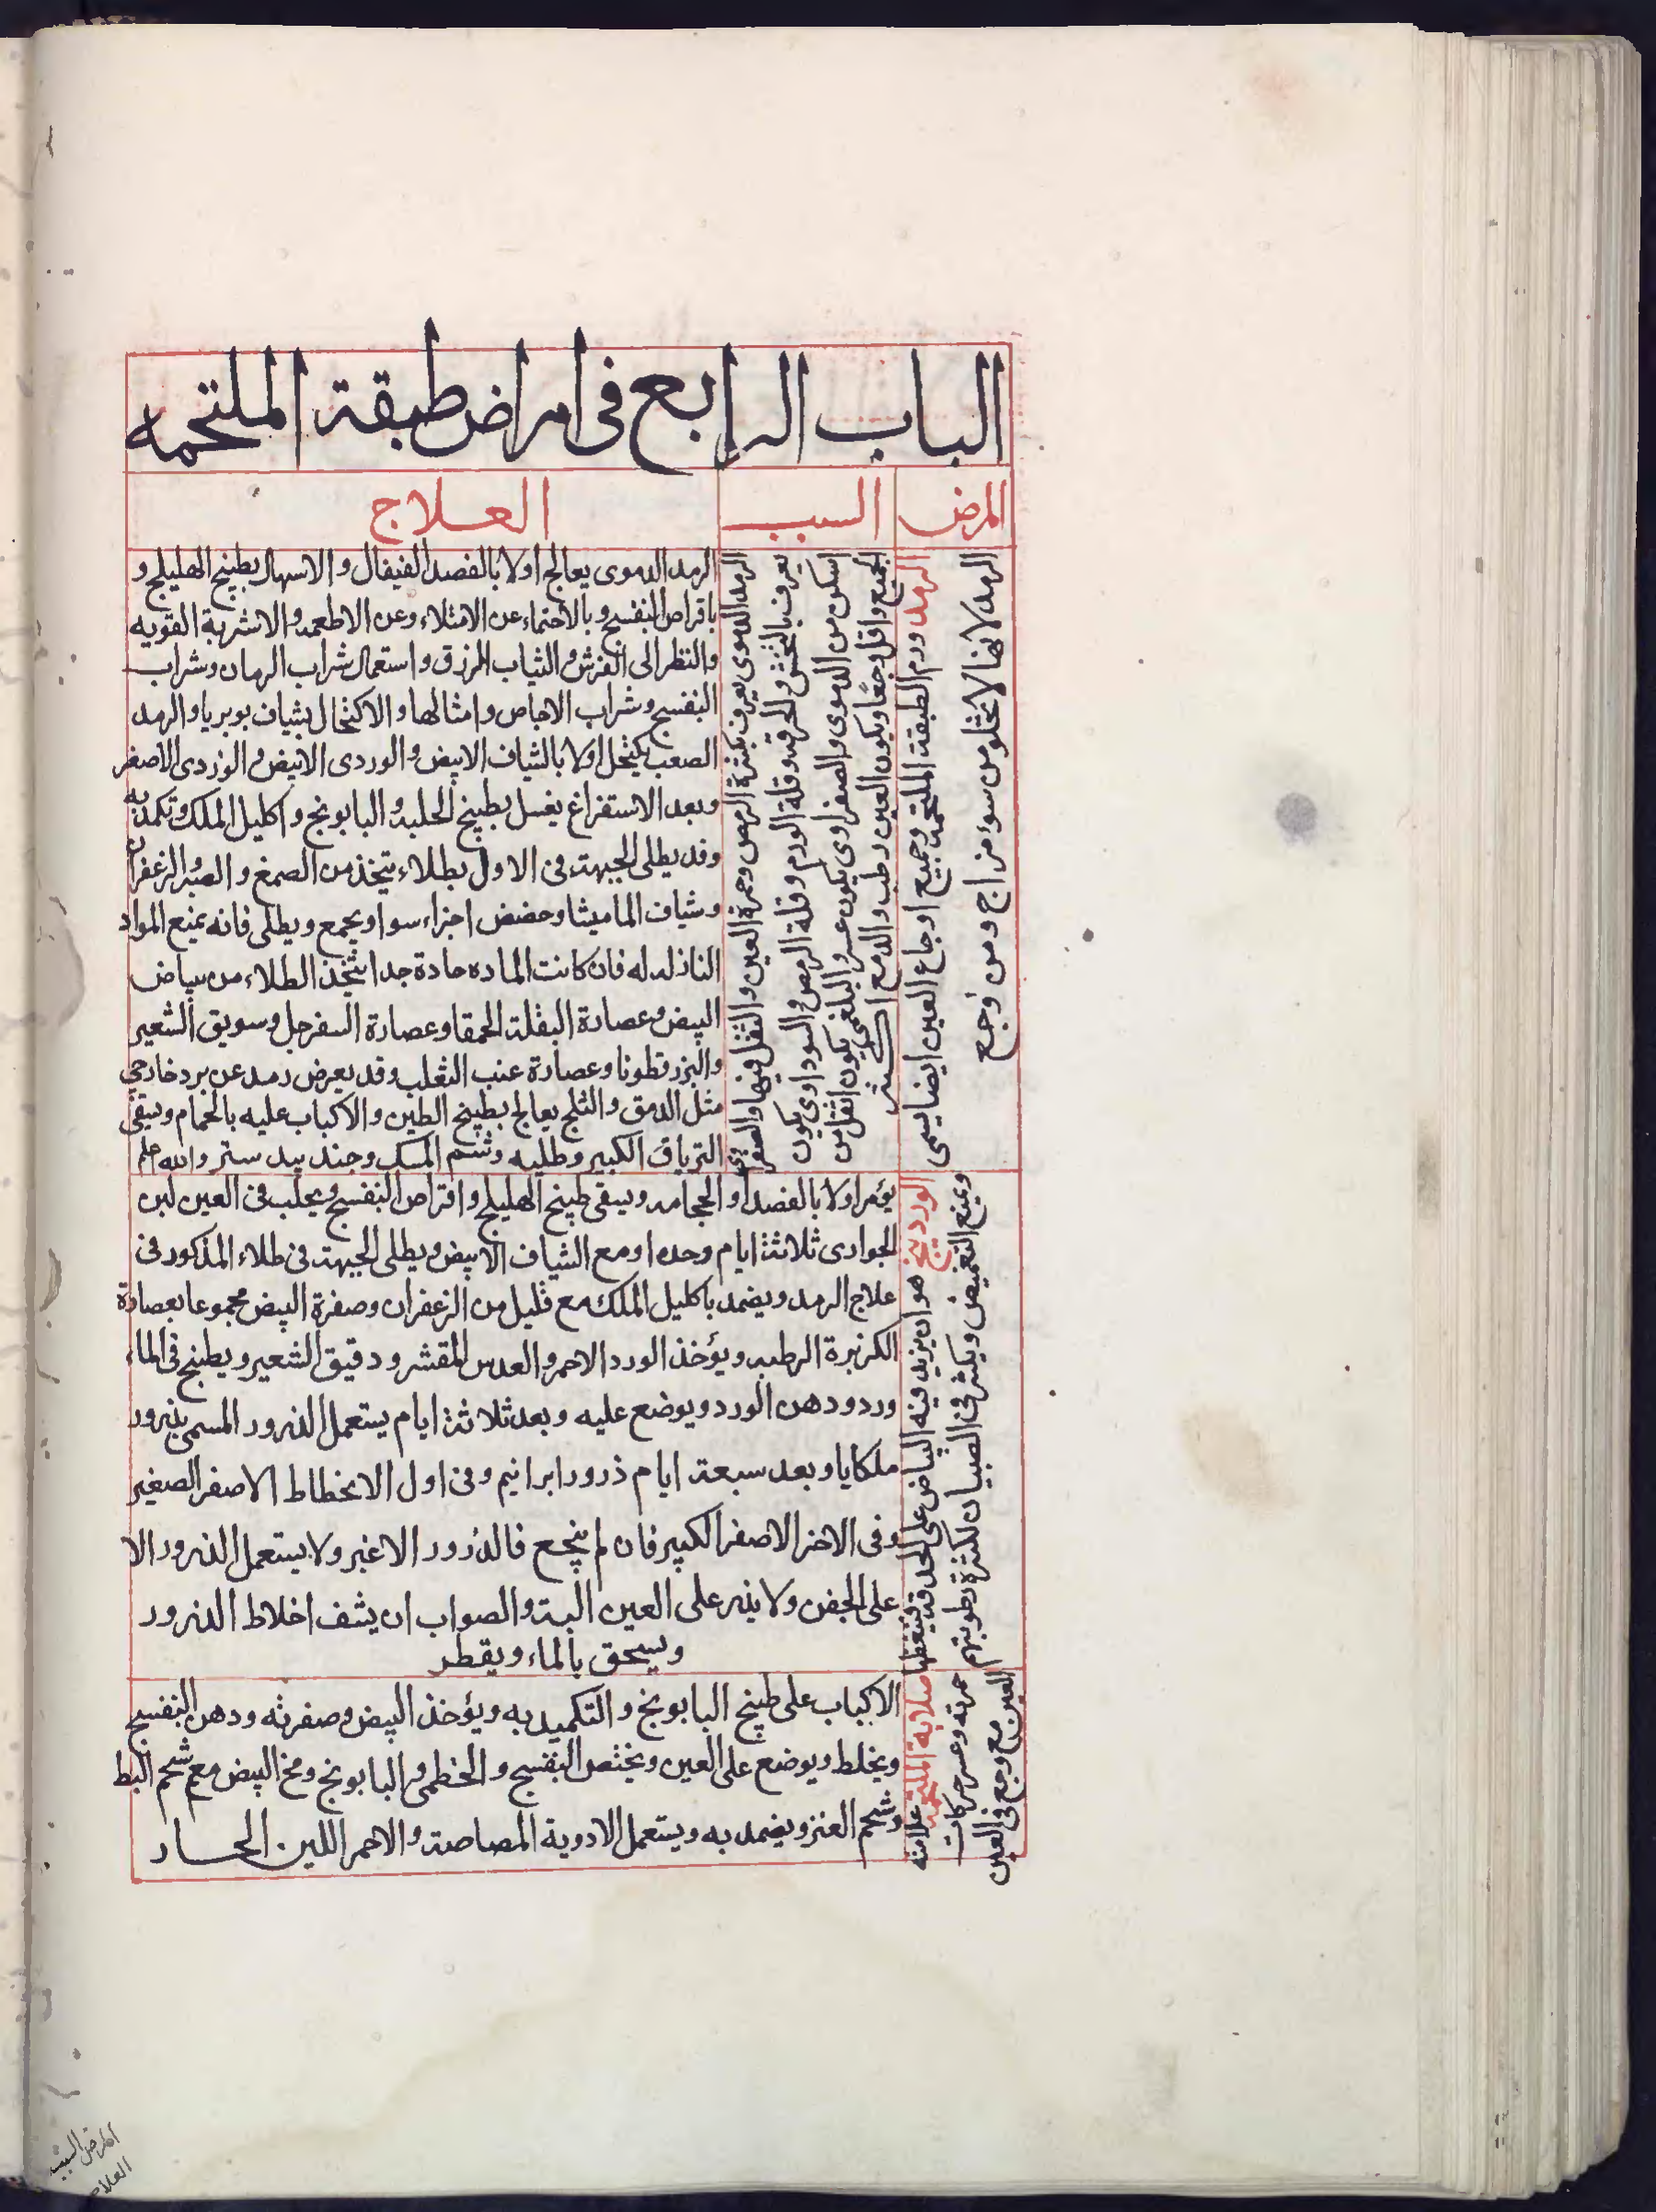 الباب الرابع في امراض طبقة الملتحمه
المرض
السبب
العلاج
الرمد ورم الطبقة الملتحمه وجميع اوجاع العين ايضا يسمى
الرمد لانها لا تخلو من سوء مزاج ومن وجع
الرمد الدموى يعرف بكثرة الرمص وحمرة العين والثقل فيها والصفراوى
يعرف بالنخس والحرقه وقلة الورم وقلة الرمص والسوداوى يكون
اسكن من الدموى والصفراوى يكون عسر والبلغمى يكون اثقل من
الجميع واقل وجعًا ويكون العين رطب والدمع اكثر
الرمد الدموى يعالج اولا بالفصد القيفال والاسهال بطبيخ الهليلج و
باقراص البنفسج وبالاحتماء عن الامتلاء وعن الاطعمه والاشربة القويه
والنظر الى الفرش والثياب الزرق واستعمال شراب الرمان وشراب
البنفسج وشراب الاجاص وامثالها والاكتحال بشياف بوبريا والرمد
الصعب يكتحل اولا بالشياف الابيض والوردى الابيض والوردى الاصفر
وبعد الاستفراغ يغسل بطبيخ الحلبه والبابونج واكليل الملك وتكمد به
وقد يطلى الجبهة فى الاول بطلاء يتخذ من الصمغ والصبر والزعفران
وشياف الماميثا وحضض اجزاء سوا ويجمع ويطلى فانه يمنع المواد
النازله له فان كانت الماده حادة جدا يتخذ الطلاء من بياض
البيض وعصارة البقلة الحمقا وعصارة السفرجل وسويق الشعير
والبزرقطونا وعصارة عنب الثعلب وقد يعرض رمد عن برد خارجي
مثل الدمق والثلج يعالج بطبيخ الطين والاكباب عليه بالحمام ويسقى
الترياق الكبير وطليه وشم المسك وجند بيد ستر والله اعلم
الوردينج هو ان يزيد فيه البياض على الحدقة فيغطها
ويمنع التغميض ويكثر فى الصبيان لكثرة رطوبتهم
يؤمر اولا بالفصد او الحجامه ويسقى طبيخ الهليلج واقراص البنفسج ويحلب فى العين لبن
الجوارى ثلاثة ايام وحده او مع الشياف الابيض ويطلى الجبهة فى طلاء المذكور فى
علاج الرمد ويضمد باكليل الملك مع قليل من الزعفران وصفرة البيض مجموعا بعصارة
الكزبرة الرطبه ويؤخذ الورد الاحمر والعدس المقشر ودقيق الشعير ويطبخ فى الماء
ورد ودهن الورد ويوضع عليه وبعد ثلاثة ايام يستعمل الذرور المسمى بذرور
ملكايا وبعد سبعة ايام ذرور ابرانيم وفى اول الانحطاط الاصفر الصغير
وفى الاخر الاصفر الكبير فان لم ينجع فالذرور الاغبر ولا يستعمل الذرور الا
على الجفن ولا يذر على العين البته والصواب ان يشف اخلاط الذرور
ويسحق بالماء ويقطر
صلابة الملتحمه علامته
حمرته وعسر حركات
العين مع وجع فى العين
الاكباب على طبيخ البابونج والتكميد به ويؤخذ البيض وصفرته ودهن البنفسج
ويخلط ويوضع على العين ويختص البنفسج والخطمى والبابونج ومخ البيض مع شحم البط
وشحم العنز ويضمد به ويستعمل الادوية المصاصة والاحمر اللين الحار
المرض السبب
العلاج